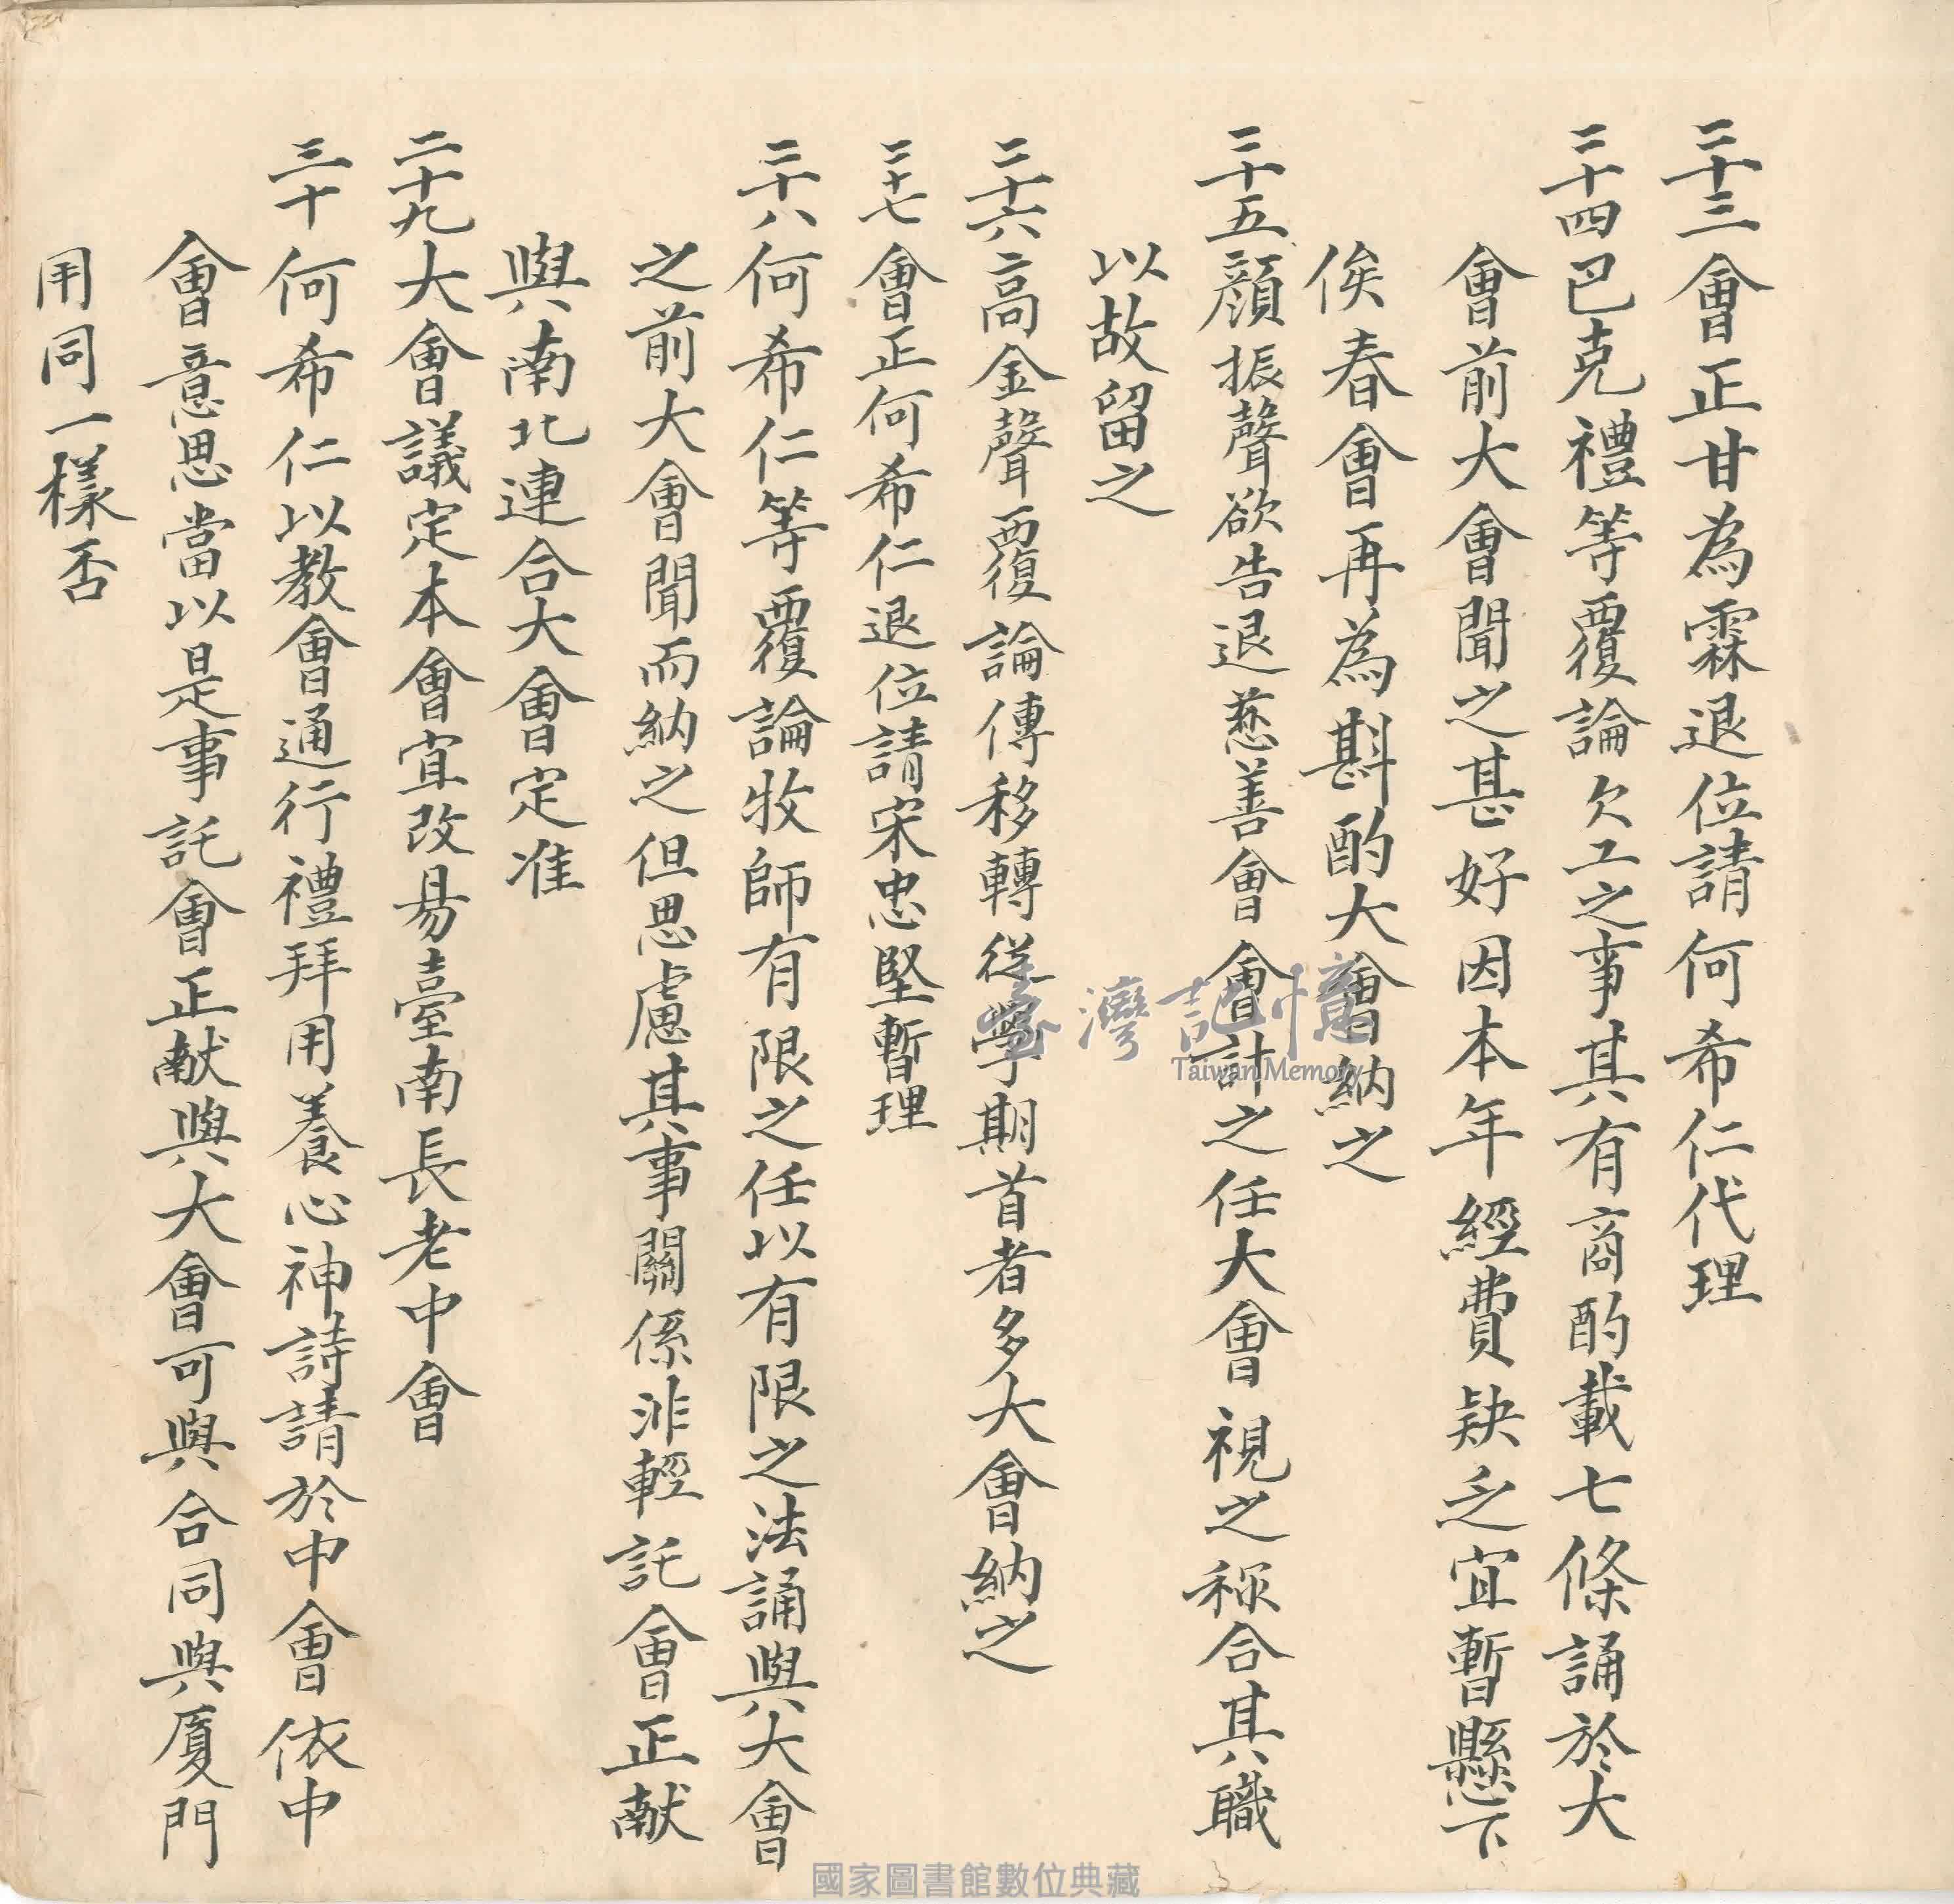 二十三會正甘為霖退位請何希仁代理
二十四巴克禮等覆論欠工之事其有商酌載七條誦於大
會前大會聞之甚好因本年經費缺乏宜暫懸下
俟春會再為斟酌大會納之
二十五顏振聲欲告退慈善會會計之任大會視之称合其職
以故留之
二十六高金聲覆論傳移轉從學期首者多大會納之
二十七會正何希仁退位請宋忠堅暫理
二十八何希仁等覆論牧師有限之任以有限之法誦與大會
之前大會聞而納之但思慮其事關係非輕託會正献
與南北連合大會定准
二十九大會議定本會宜改易臺南長老中會
三十何希仁以教會通行禮拜用養心神詩請於中會依中
會意思當以是事託會正献與大會可與合同與厦門
用同一樣否
臺灣記憶
Taiwan Memory
國家圖書館數位典藏